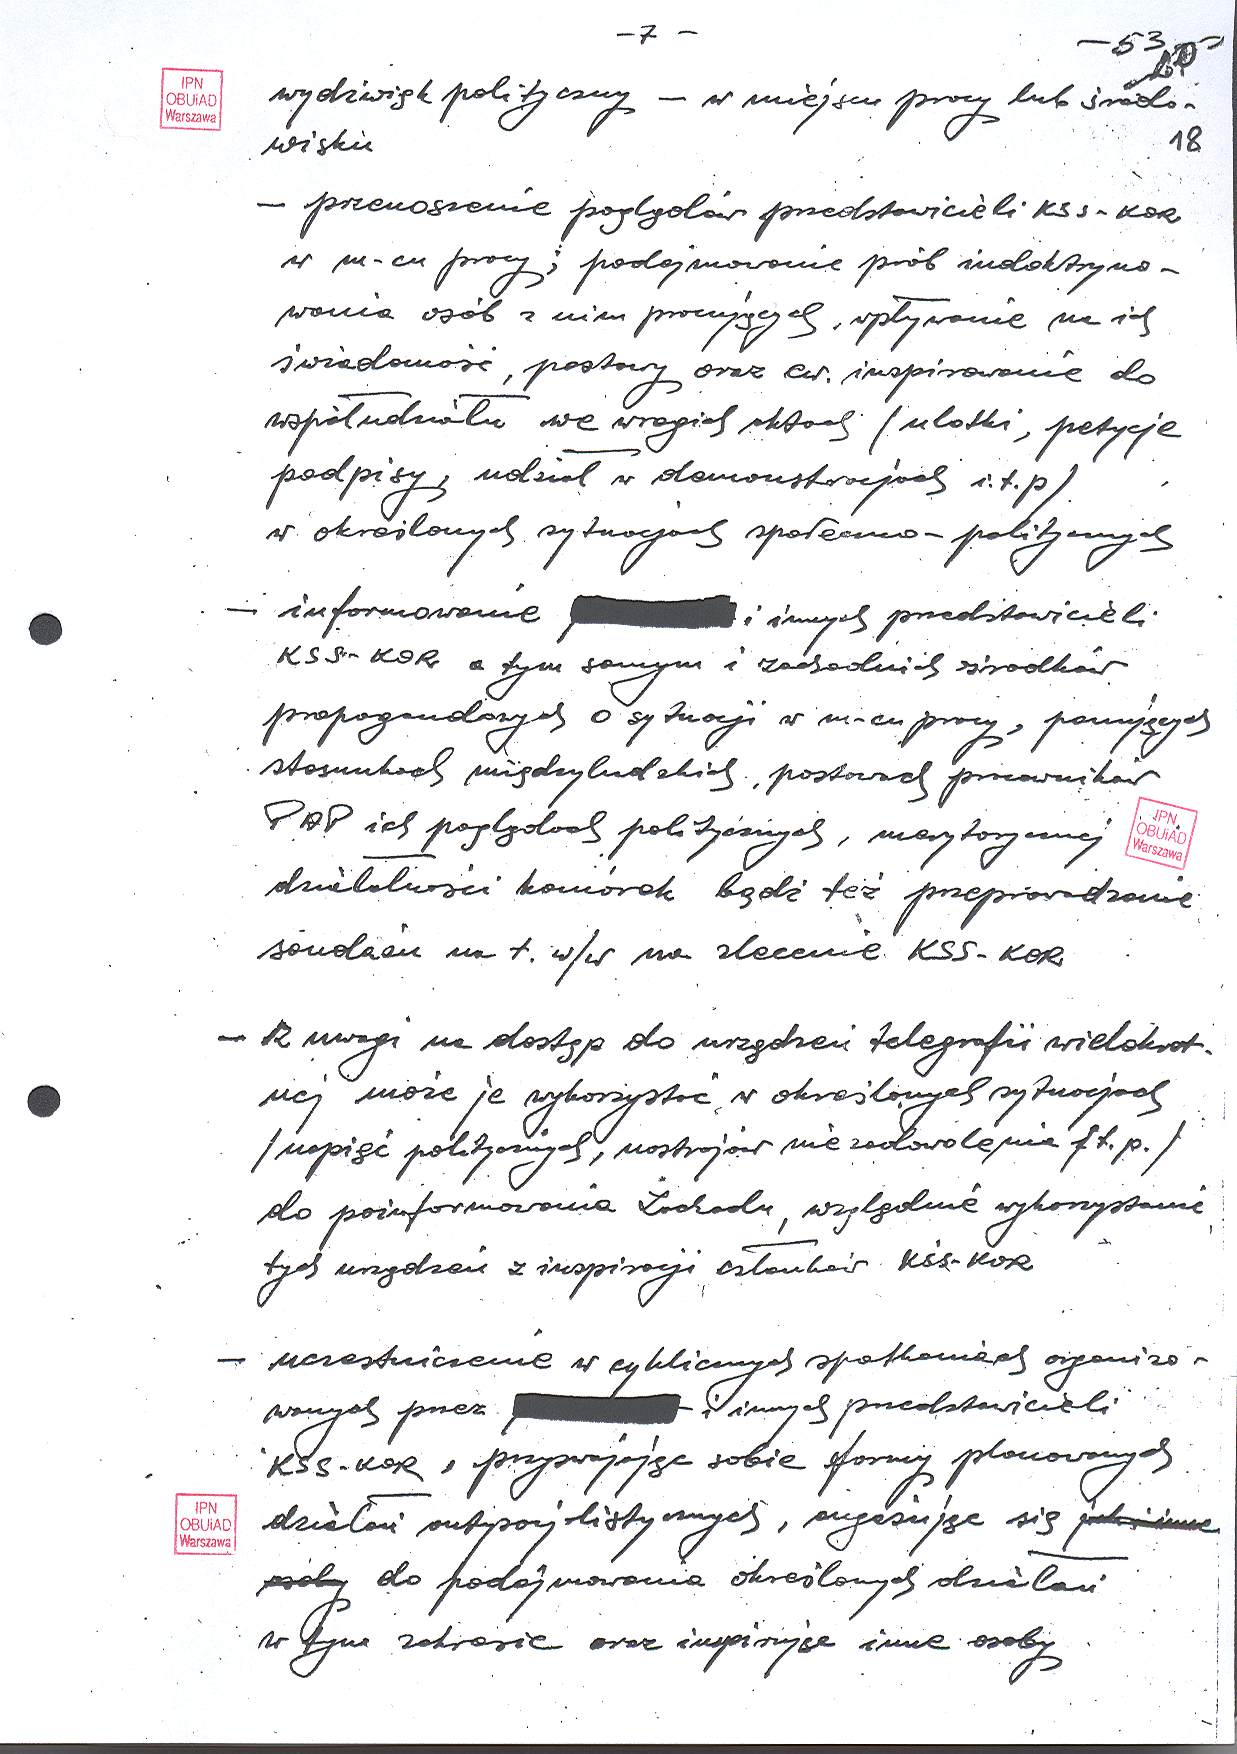 - 7 -
- 53 -
18
IPN
OBUiAD
Warszawa
wydźwięk polityczny - w miejscu pracy lub środo-
wisku
- przenoszenie poglądów przedstawicieli KSS-KOR
w m-cu pracy; podejmowanie prób indoktryno-
wania osób z nim pracujących, wpływanie na ich
świadomość, postawy oraz ew. inspirowanie do
współudziału we wrogich aktach /ulotki, petycje
podpisy, udział w demonstracjach i.t.p/
w określonych sytuacjach społeczno-politycznych
- informowanie i innych przedstawicieli
KSS-KOR a tym samym i zachodnich ośrodków
propagandowych o sytuacji w m-cu pracy, panujących
stosunkach międzyludzkich, postawach pracowników
PAP ich poglądach politycznych, merytorycznej
IPN
OBUiAD
Warszawa
działalności komórek bądź też przeprowadzanie
sondaży na t. w/w na zlecenie KSS-KOR
- Z uwagi na dostęp do urządzeń telegrafii wielokrot-
nej może je wykorzystać w określonych sytuacjach
/napięć politycznych, nastrojów niezadowolenia i t.p./
do poinformowania Zachodu, względnie wykorzystanie
tych urządzeń z inspiracji członków KSS-KOR
- uczestniczenie w cyklicznych spotkaniach organizo-
wanych przez i innych przedstawicieli
KSS-KOR, przyswajając sobie formy planowanych
IPN
OBUiAD
Warszawa
działań antysocjalistycznych, angażując się jak i inne
osoby do podejmowania określonych działań
w tym zakresie oraz inspirując inne osoby